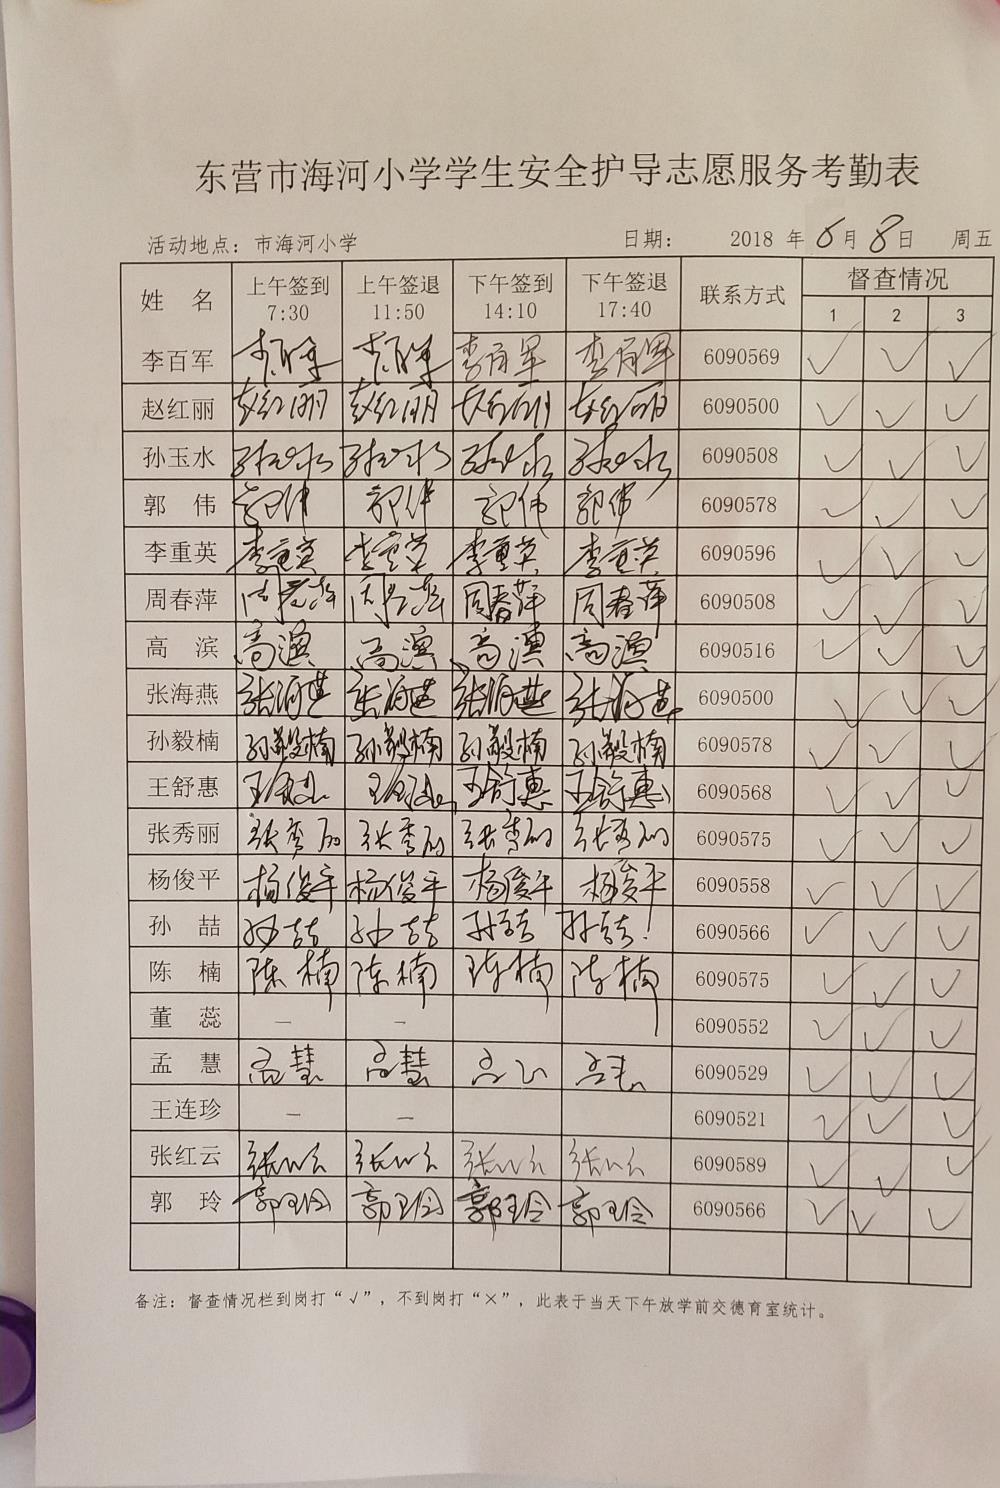 东营市海河小学学生安全护导志愿服务考勤表
活动地点：市海河小学 日期： 2018 年 6 月 8 日 周五
姓 名 上午签到 7:30 上午签退 11:50 下午签到 14:10 下午签退 17:40 联系方式 督查情况 1 2 3
李百军 李百军 李百军 李百军 李百军 6090569 √ √ √
赵红丽 赵红丽 赵红丽 赵红丽 赵红丽 6090500 √ √ √
孙玉水 孙玉水 孙玉水 孙玉水 孙玉水 6090508 √ √ √
郭 伟 郭伟 郭伟 郭伟 郭伟 6090578 √ √ √
李重英 李重英 李重英 李重英 李重英 6090596 √ √ √
周春萍 周春萍 周春萍 周春萍 周春萍 6090508 √ √ √
高 滨 高滨 高滨 高滨 高滨 6090516 √ √ √
张海燕 张海燕 张海燕 张海燕 张海燕 6090500 √ √ √
孙毅楠 孙毅楠 孙毅楠 孙毅楠 孙毅楠 6090578 √ √ √
王舒惠 王舒惠 王舒惠 王舒惠 王舒惠 6090568 √ √ √
张秀丽 张秀丽 张秀丽 张秀丽 张秀丽 6090575 √ √ √
杨俊平 杨俊平 杨俊平 杨俊平 杨俊平 6090558 √ √ √
孙 喆 孙喆 孙喆 孙喆 孙喆! 6090566 √ √ √
陈 楠 陈楠 陈楠 陈楠 陈楠 6090575 √ √ √
董 蕊 — — 6090552 √ √ √
孟 慧 孟慧 孟慧 孟慧 孟慧 6090529 √ √ √
王连珍 — — 6090521 √ √ √
张红云 张红云 张红云 张红云 张红云 6090589 √ √ √
郭 玲 郭玲 郭玲 郭玲 郭玲 6090566 √ √ √
备注：督查情况栏到岗打“√”，不到岗打“×”，此表于当天下午放学前交德育室统计。